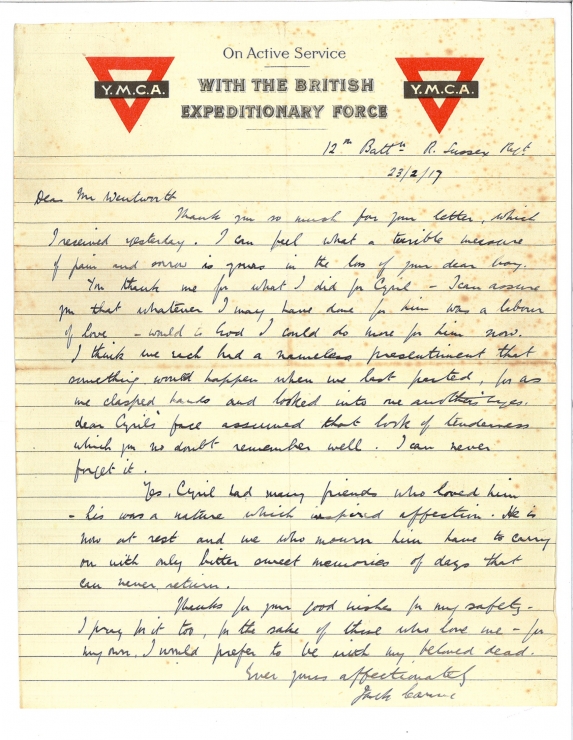 On Active Service
Y.M.C.A.
WITH THE BRITISH
EXPEDITIONARY FORCE
Y.M.C.A.
12th Battn R. Sussex Regt
23/2/17
Dear Mr Wentworth
Thank you so much for your letter, which
I received yesterday. I can feel what a terrible measure
of pain and sorrow is yours in the loss of your dear boy.
You thank me for what I did for Cyril – I can assure
you that whatever I may have done for him was a labour
of love – would to God I could do more for him now.
I think we each had a nameless presentiment that
something would happen when we last parted, for as
we clasped hands and looked into one another's eyes.
dear Cyril's face assumed that look of tenderness
which you no doubt remember well. I can never
forget it.
Yes, Cyril had many friends who loved him
– his was a nature which inspired affection. He is
now at rest and we who mourn him have to carry
on with only bitter sweet memories of days that
can never return.
Thanks for your good wishes for my safety –
I pray for it too, for the sake of those who love me – for
my own, I would prefer to be with my beloved dead.
Ever yours affectionately
Jack